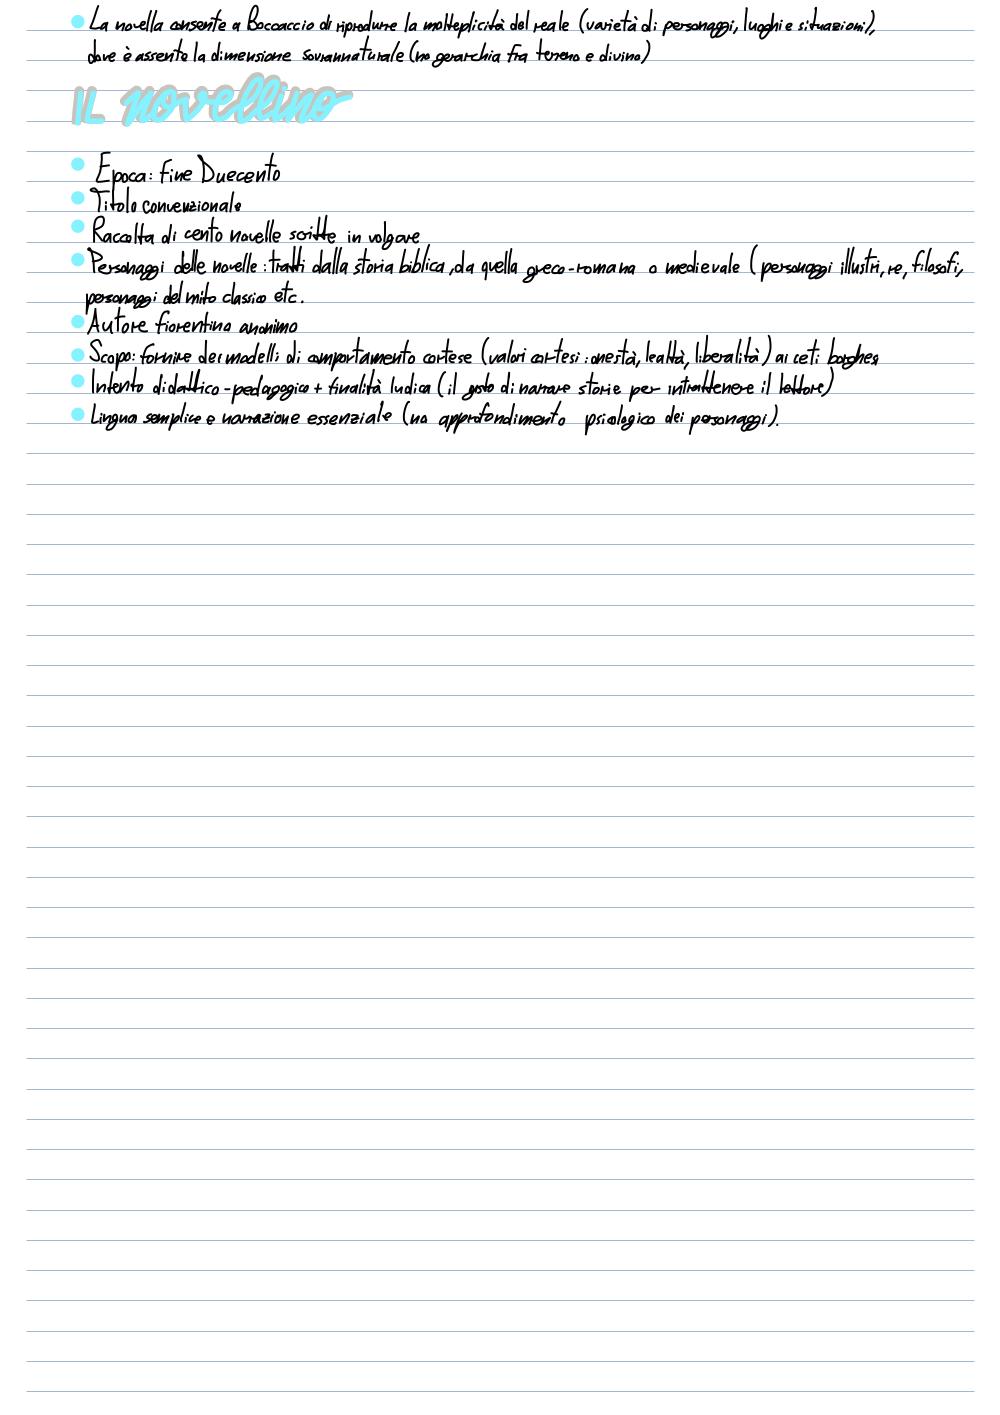 La novella consente a Boccaccio di riprodurre la molteplicità del reale (varietà di personaggi, luoghi e situazioni),
dove è assente la dimensione sovrannaturale (no gerarchia fra terreno e divino)
IL novellino
Epoca: fine Duecento
Titolo convenzionale
Raccolta di cento novelle scritte in volgare
Personaggi delle novelle: tratti dalla storia biblica, da quella greco-romana o medievale (personaggi illustri, re, filosofi,
personaggi del mito classico etc.
Autore fiorentino anonimo
Scopo: fornire dei modelli di comportamento cortese (valori cortesi: onestà, lealtà, liberalità) ai ceti borghesi
Intento didattico-pedagogico + finalità ludica (il gusto di narrare storie per intrattenere il lettore)
Lingua semplice e narrazione essenziale (no approfondimento psicologico dei personaggi).